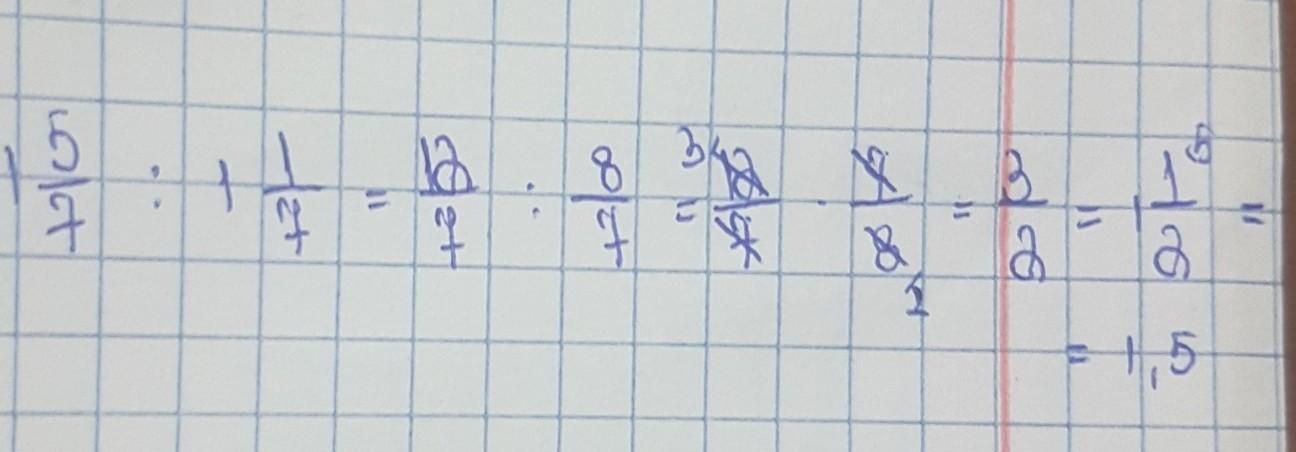 1 5/7 : 1 1/7 = 12/7 : 8/7 = 3 12/7 · 7/8 2 = 3/2 = 1 1/2 5 =
= 1,5